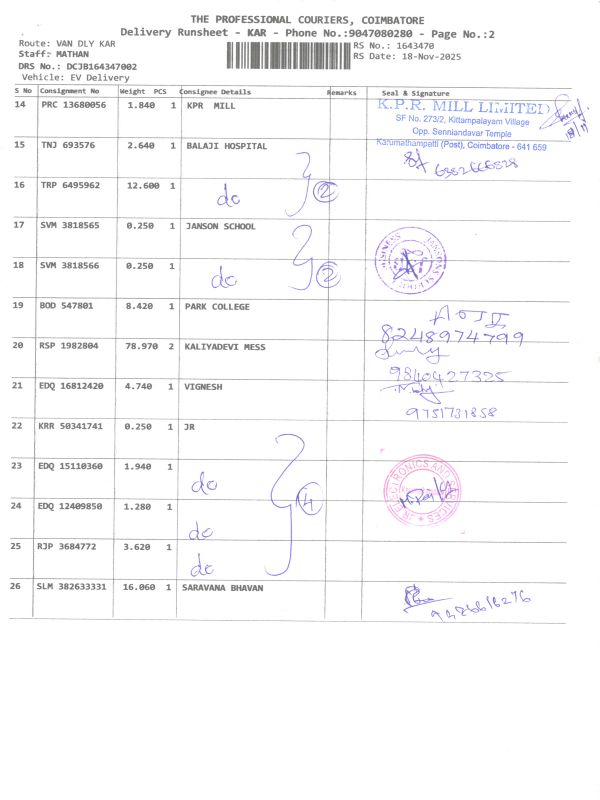 THE PROFESSIONAL COURIERS, COIMBATORE
Delivery Runsheet - KAR - Phone No.:9047080280 - Page No.:2
Route: VAN DLY KAR RS No.: 1643470
Staff: MATHAN RS Date: 18-Nov-2025
DRS No.: DCJB164347002
Vehicle: EV Delivery
S No Consignment No Weight PCS Consignee Details Remarks Seal & Signature
14 PRC 13680056 1.840 1 KPR MILL
K.P.R. MILL LIMITED
SF No. 273/2, Kittampalayam Village
Opp. Senniandavar Temple
Karumathampatti (Post), Coimbatore - 641 659
15 TNJ 693576 2.640 1 BALAJI HOSPITAL
6382666828
16 TRP 6495962 12.600 1 do 2
17 SVM 3818565 0.250 1 JANSON SCHOOL
18 SVM 3818566 0.250 1 do 2
19 BOD 547801 8.420 1 PARK COLLEGE
8248974799
20 RSP 1982804 78.970 2 KALIYADEVI MESS
9840427325
21 EDQ 16812420 4.740 1 VIGNESH
9751731858
22 KRR 50341741 0.250 1 JR
23 EDQ 15110360 1.940 1 do 4
24 EDQ 12409850 1.280 1 do
25 RJP 3684772 3.620 1 do
26 SLM 382633331 16.060 1 SARAVANA BHAVAN